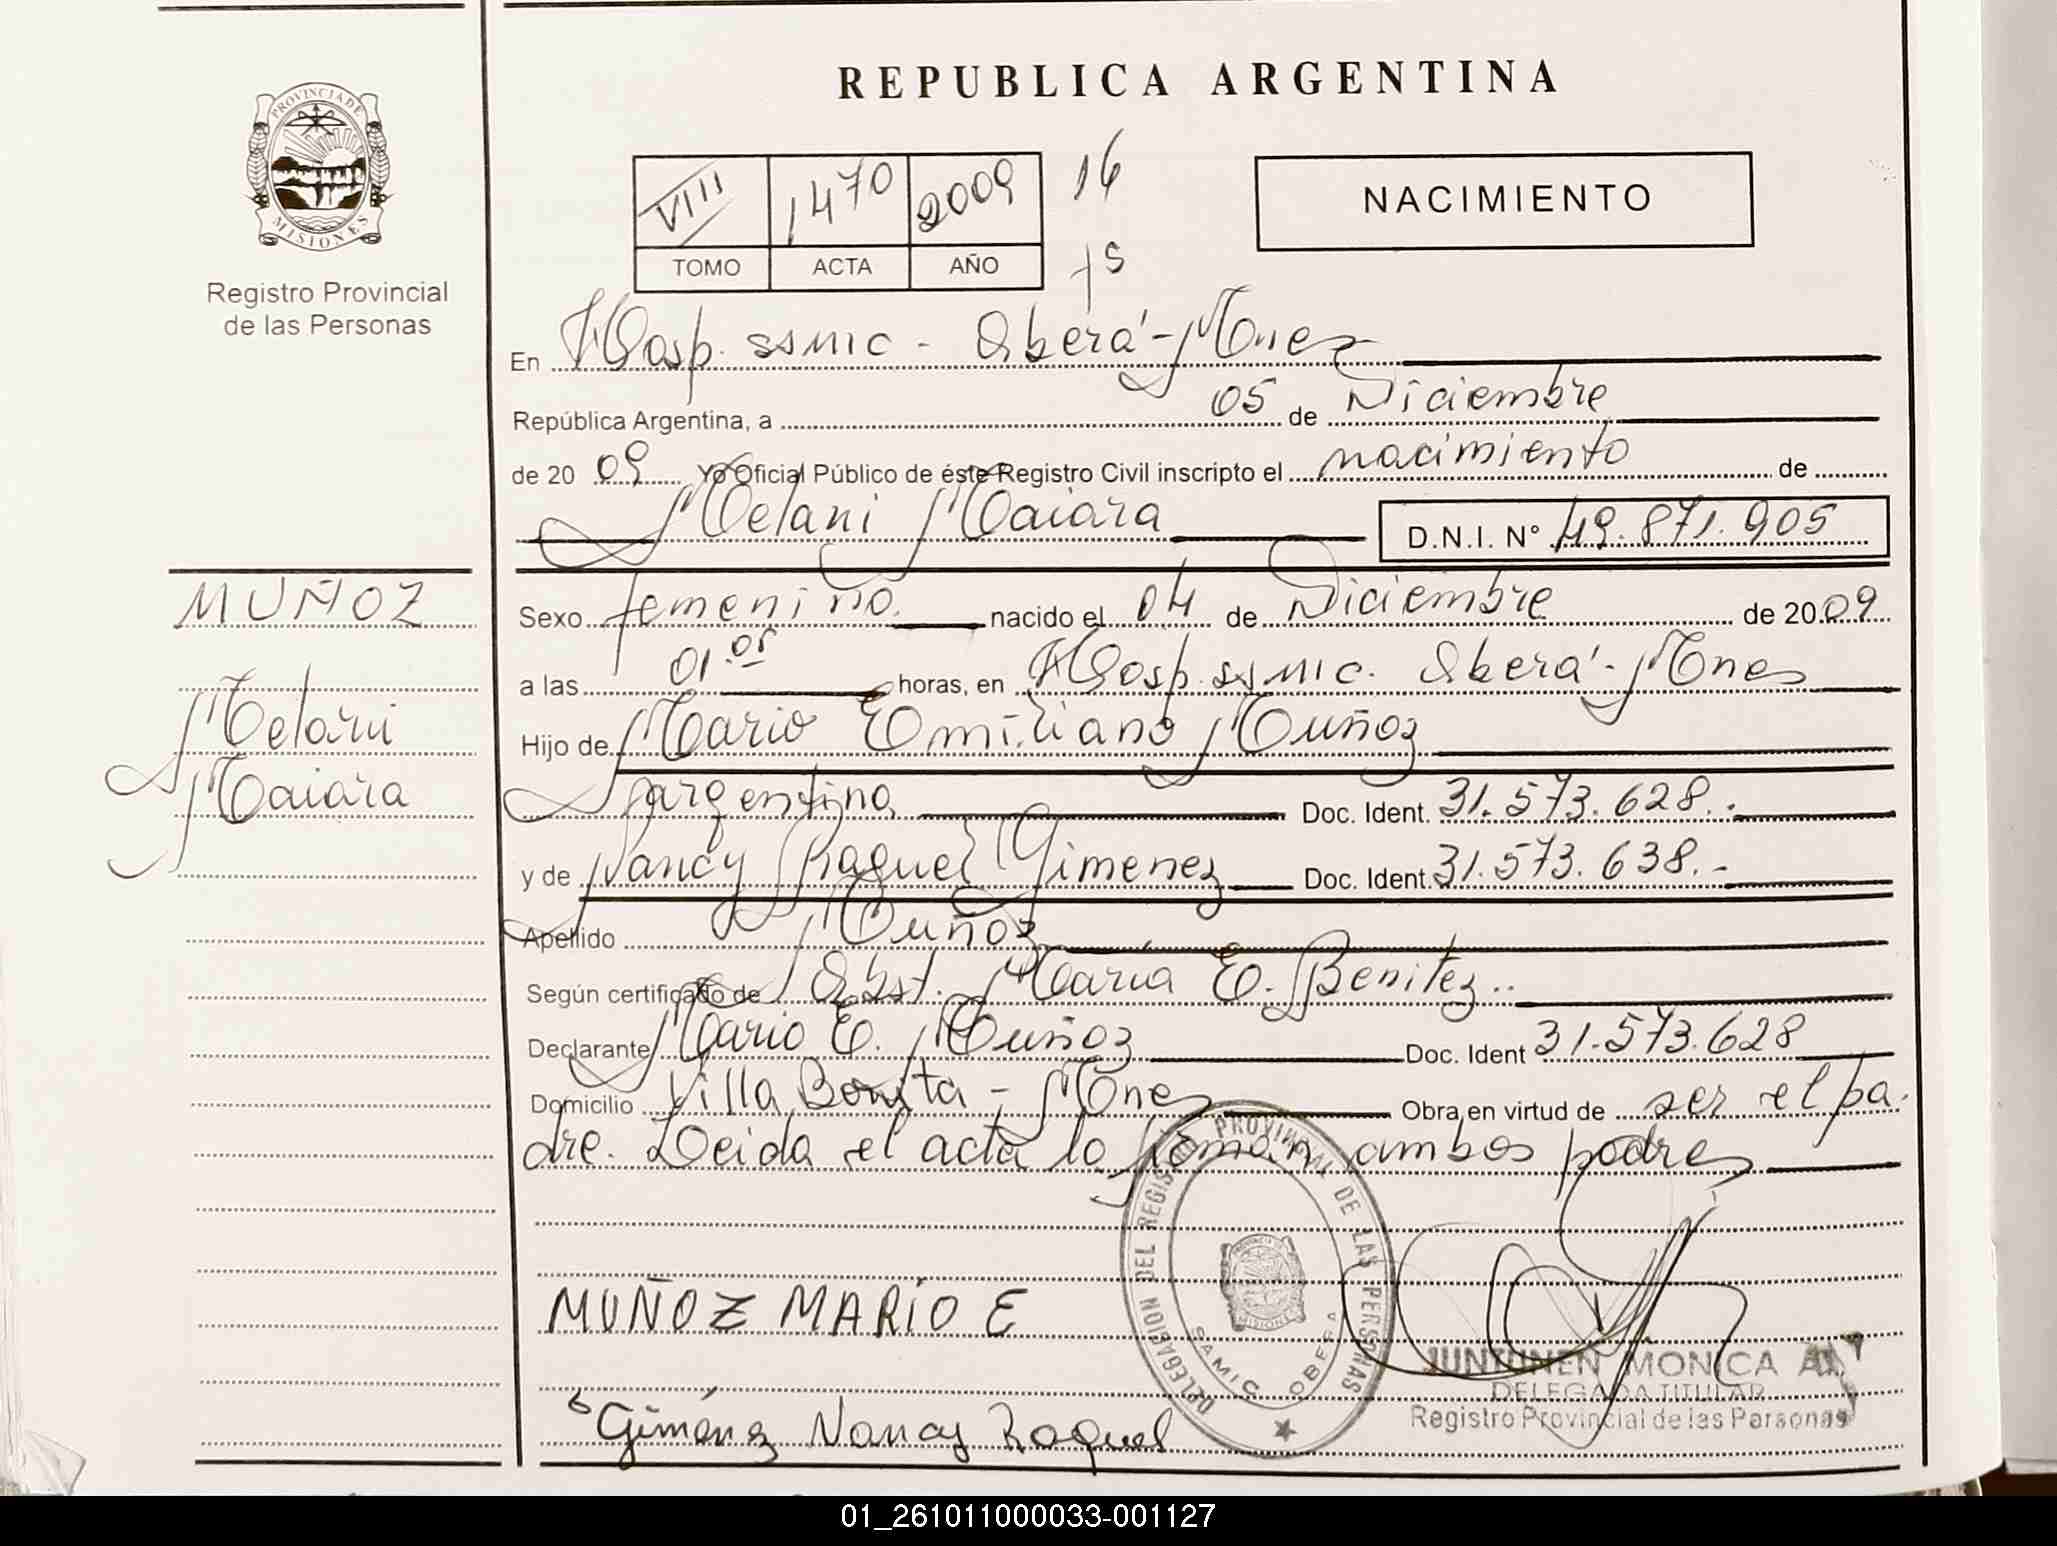 REPUBLICA ARGENTINA
PROVINCIA DE
MISIONES
Registro Provincial
de las Personas
VIII 1470 2009 16
TOMO ACTA AÑO 15
NACIMIENTO
En Hosp. SSMIC - Oberá - Mnes
República Argentina, a 05 de Diciembre
de 20 09 Yo Oficial Público de éste Registro Civil inscripto el nacimiento de
Melani Maiara D.N.I. Nº 49.871.905
MUÑOZ
Melani
Maiara
Sexo femenino nacido el 04 de Diciembre de 20 09
a las 01.05 horas, en Hosp. SSMIC. Oberá - Mnes
Hijo de Mario Emiliano Muñoz
argentino Doc. Ident. 31.573.628.-
y de Nancy Raquel Gimenez Doc. Ident. 31.573.638.-
Apellido Muñoz
Según certificado de Obst. Maria E. Benitez..
Declarante Mario E. Muñoz Doc. Ident 31.573.628
Domicilio Villa Bonita - Mnes Obra en virtud de ser el pa-
dre. Leida el acta la firman ambos padres
DELEGACION DEL REGISTRO PROVINCIAL DE LAS PERSONAS
SAMIC OBERA
MUÑOZ MARIO E
JUNTUNEN MONICA
DELEGADA TITULAR
Registro Provincial de las Personas
Giménez Nancy Raquel
01_261011000033-001127